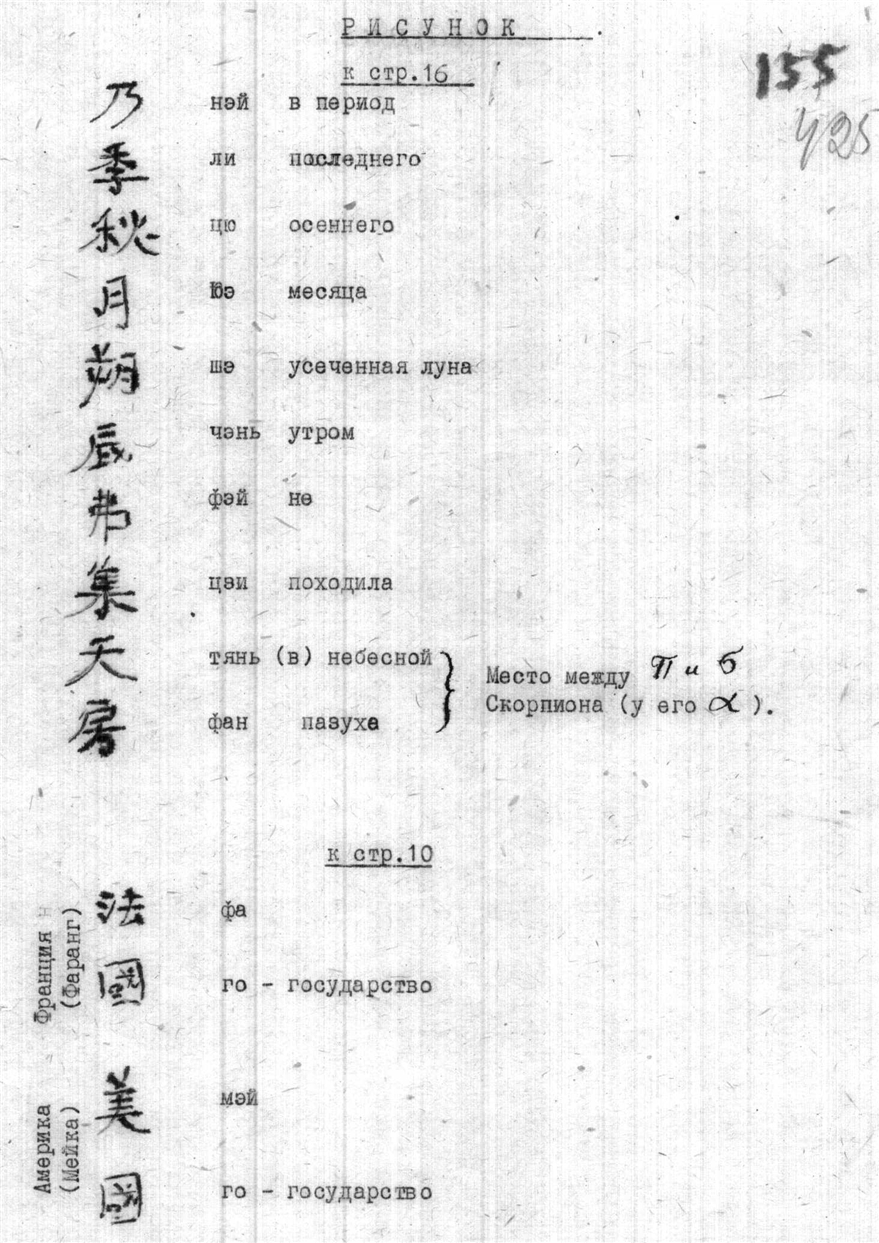 РИСУНОК.
к стр.16
155
425
乃 нэй в период
季 ли последнего
秋 цю осеннего
月 Юэ месяца
朔 шэ усеченная луна
辰 чэнь утром
弗 фэй не
集 цзи походила
天 тянь (в) небесной
房 фан пазухе
Место между π и б
Скорпиона (у его α).
к стр.10
法 фа
國 го - государство
Франция
(Фаранг)
美 мэй
國 го - государство
Америка
(Мейка)